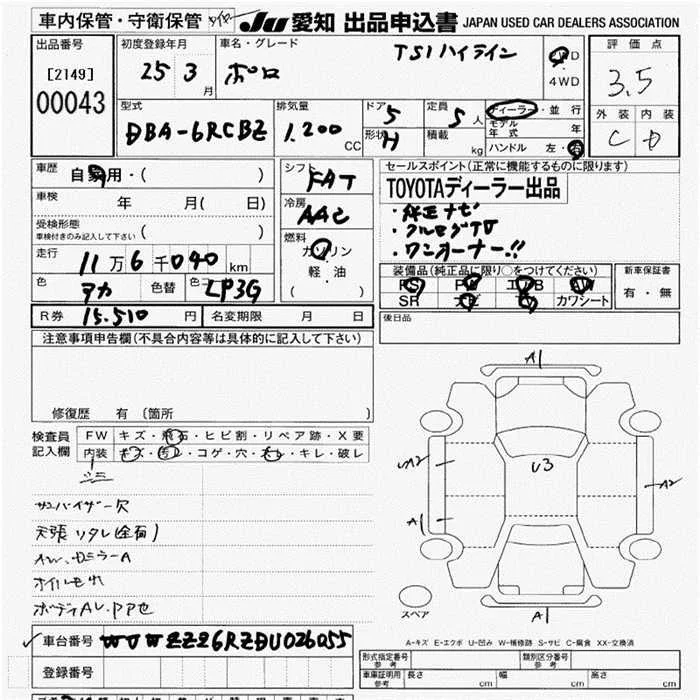 車内保管・守衛保管 JU 愛知 出品申込書 JAPAN USED CAR DEALERS ASSOCIATION
出品番号 [2149] 00043
初度登録年月 25 3月
車名・グレード ポロ TSIハイライン
2WD・4WD
評価点 3.5
外装 内装
C D
型式 DBA-6RCBZ
排気量 1.200 CC
ドア 5
形状 H
定員 5人
積載 kg
ディーラー・並行
モデル年式 年
ハンドル 左・右
車歴 自家用・( )
車検 年 月( 日)
受検形態
車検付きのみ記入して下さい ( )
走行 11万6千040km
色 アカ 色替 色コ LP3G
シフト FAT
冷房 AAC
燃料 ガソリン・軽・油 ( )
セールスポイント(正常に機能するものに限ります)
TOYOTAディーラー出品
・純正ナビ
・フルセグTV
・ワンオーナー!!
装備品(純正品に限り○をつけてください)
PS PW エアB AW
SR ナビ カワシート
新車保証書 有・無
R券 15.510円 名変期限 月 日
後日品
注意事項申告欄(不具合内容等は具体的に記入して下さい)
修復歴 有 (箇所 )
検査員記入欄
FW キズ・飛石・ヒビ割・リペア跡・X要
内装 キズ・汚レ・コゲ・穴・スレ・キレ・破レ
シミ
サンバイザー欠
天張リタレ(全面)
AW、ドミラーA
オイルモレ
ボディAU、PP色
A1
UA2
U3
A2
A1
A1
スペア
A-キズ E-エクボ U-凹み W-補修跡 S-サビ C-腐食 XX-交換済
車台番号 WVWZZZ6RZDU026055
登録番号
形式指定番号 参考
類別区分番号 参考
車庫証明用 参考 長さ cm 幅 cm 高さ cm